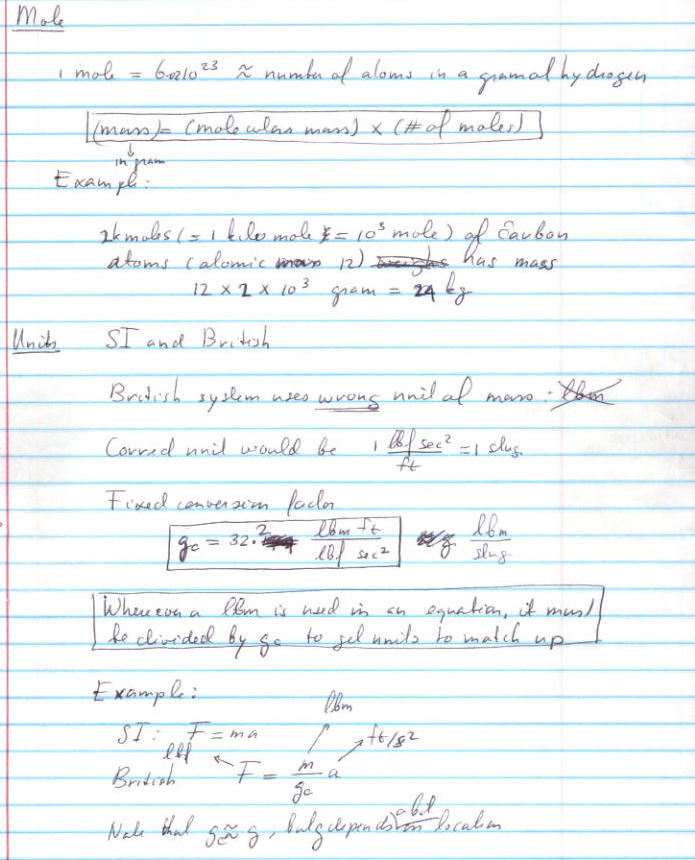 Mole
1 mole = 6.02 10^23 ≈ number of atoms in a gram of hydrogen
(mass) = (molecular mass) × (# of moles)
↓
in gram
Example:
2 kmoles (= 1 kilo mole = 10^3 mole) of Carbon
atoms (atomic mass 12) has mass
12 × 2 × 10^3 gram = 24 kg
Units SI and British
British system uses wrong unit of mass: lbm
Correct unit would be 1 lbf sec^2 / ft = 1 slug
Fixed conversion factor
g_c = 32.2 lbm ft / lbf sec^2 lbm / slug
Whenever a lbm is used in an equation, it must
be divided by g_c to get units to match up
Example:
lbm
SI: F = ma ft/s^2
lbf
British F = m/g_c a
Note that g_c ≈ g, but g depends on location